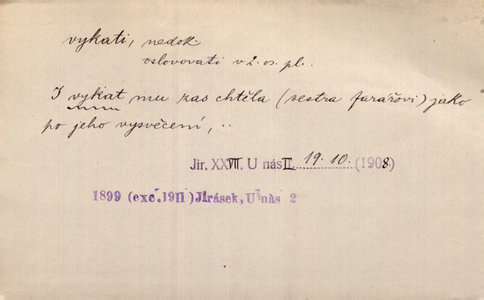 vykati, nedok.
oslovovati v 2. os. pl.
I vykat mu zas chtěla (sestra farářovi) jako
po jeho vysvěcení, ..
Jir. XXVII, U nás II 19. 10. (1908.)
1899 (exc. 1911) Jirásek, U nás 2